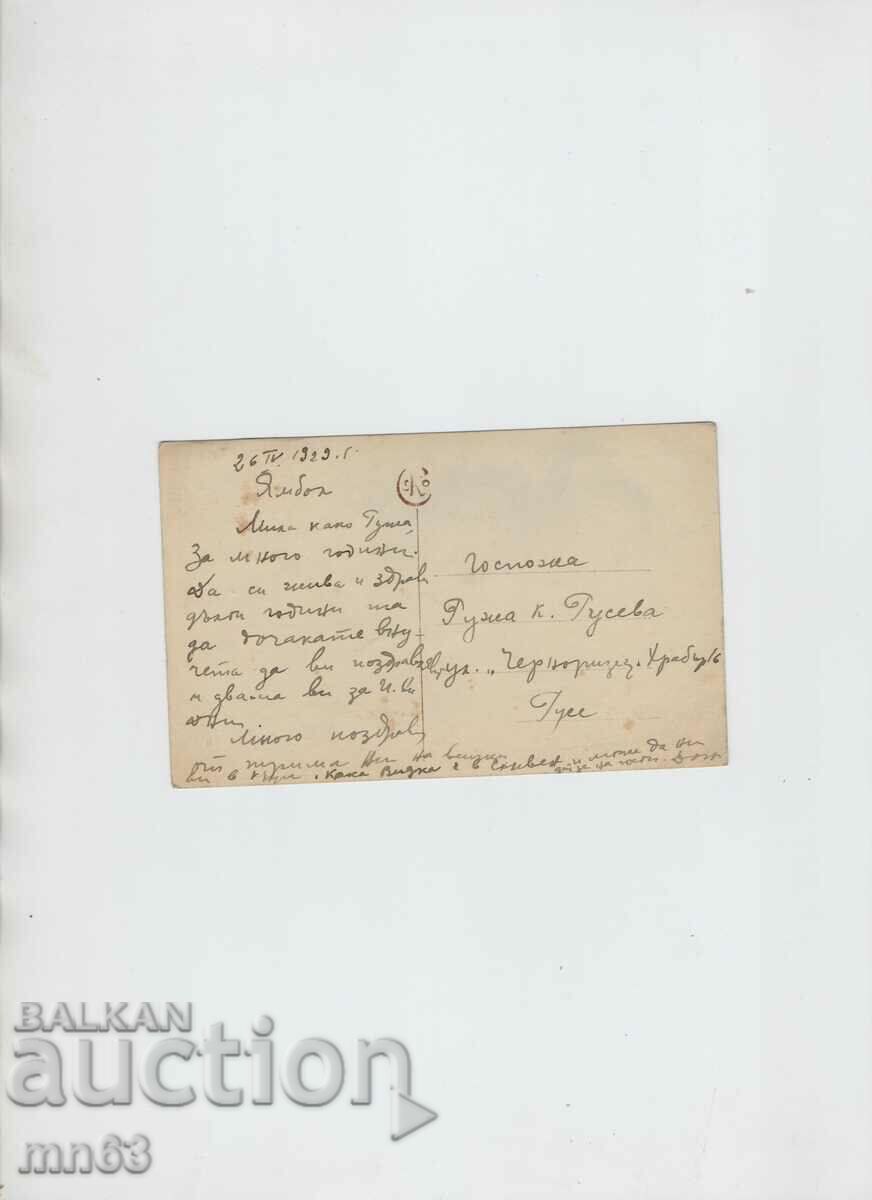 26 IV. 1929 г.
Ямбол
Мила како Ружа,
За много години.
Да си жива и здрава
дълги години та
да дочакате вну-
чета да ви поздравяв
и двама ви за
дни.
Много поздрави
от трима ни на всички
ви в Кака Видка е в Сливен и може да ни
на гости.
Госпожа
Ружа К. Русева
ул. „Черноризец Храбър 16
Русе
BALKAN
auction
mn63